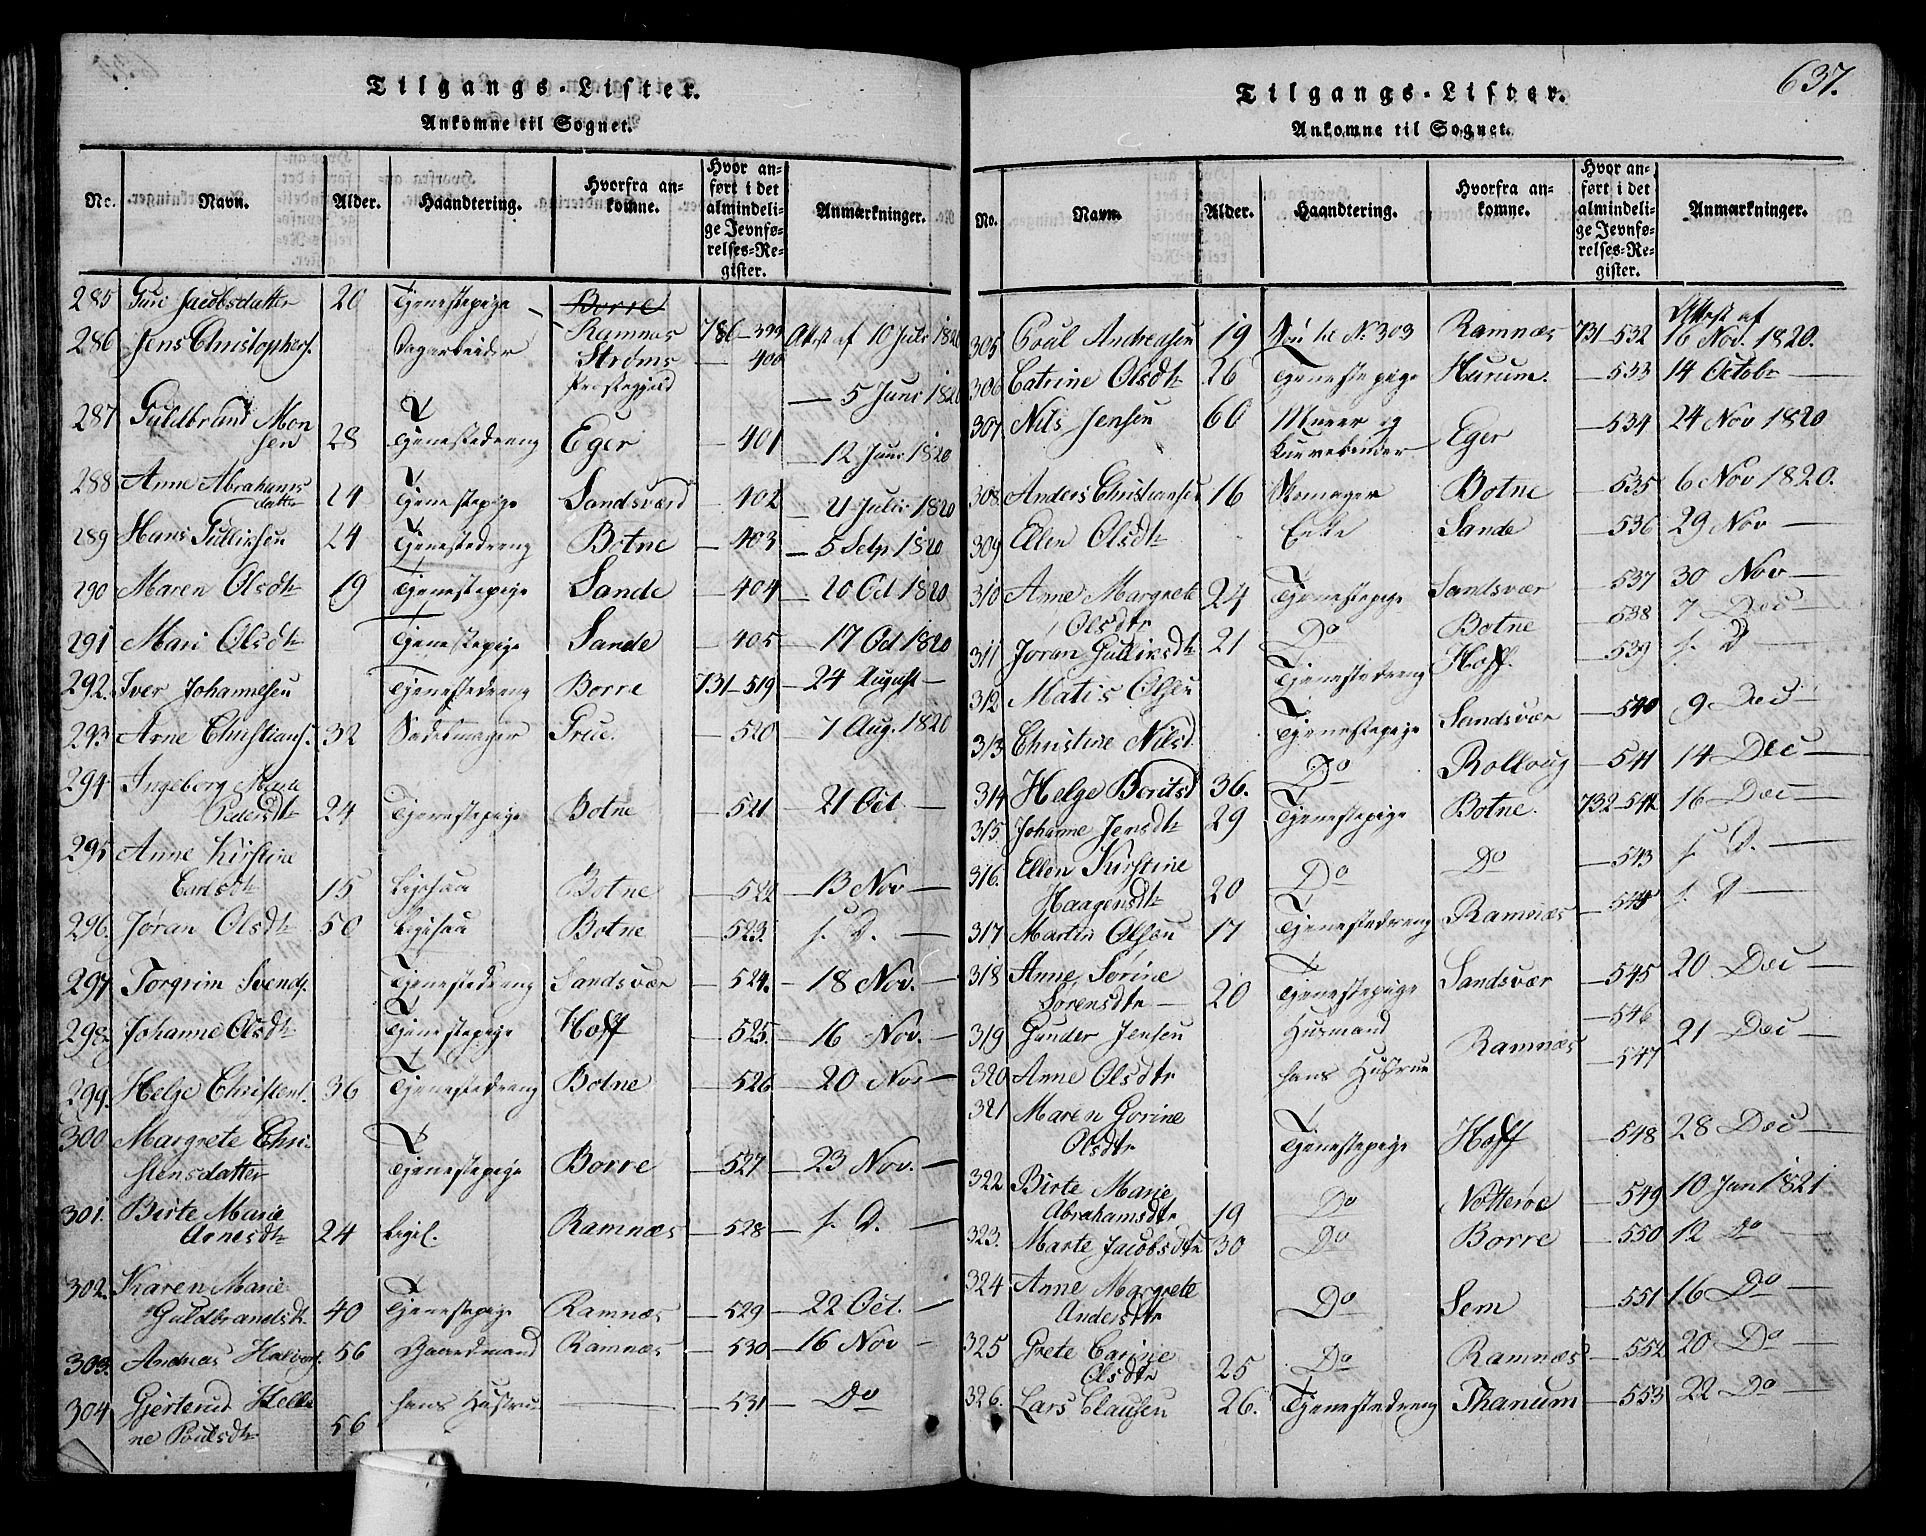 Tilgangs-Lister.
Ankomne til Sognet.
No. Navn. Alder. Haandtering. Hvorfra ankomne. Hvor anført i det almindelige Jevnførelses-Register. Anmærkninger.
285 Guri Jacobsdatter 20 Tjenestepige Borre Ramnæs 786-399 Attest af 10 Juli 1820
286 Jens Christophers. Dagarbeider Strøms Præstegjeld — 400 — 5 Juni 1820
287 Guldbrand Mon
sen 28 Tjenestedreng Eger — 401 — 12 Juni 1820
288 Anne Abrahams
datter 24 Tjenestepige Sandsværd — 402 — 21 Julii 1820
289 Hans Gulliksen 24 Tjenestedreng Botne — 403 — 5 Sept 1820
290 Maren Olsdtr 19 Tjenestepige Sande — 404 — 20 Oct 1820
291 Mari Olsdtr Tjenestepige Sande — 405 — 17 Oct 1820
292. Iver Johannesen Tjenestedreng Borre 731-519 — 24 August —
293. Arne Christians. 32 Sadelmager Grue. — 520 — 7 Aug. 1820
294. Ingeborg Maria
Pedersdtr 24 Tjenestepige Botne — 521 — 21 Oct —
295 Anne Kirstine
Carlsdtr 15 Ligesaa Botne — 522 — 13 Nov —
296. Jøran Olsdtr 50 Ligesaa Botne — 523. s. D. —
297 Torgrim Svends. Tjenestedreng Sandsvær — 524. — 18 Nov. —
298. Johanne Olsdtr Tjenestepige Hoff — 525. — 16 Nov. —
299. Helge Christens. 36 Tjenestedreng Botne — 526 — 20 Nov —
300. Margrete Chri-
stensdatter Tjenestepige Borre — 527 — 23 Nov. —
301. Birte Marie
Arnesdtr 24 Ligel. Ramnæs — 528 — s. D. —
302. Karen Marie
Guldbrandsdtr 40 Tjenestepige Ramnæs — 529 — 22 Oct. —
303. Andreas Halvors. 56 Gaardmand Ramnæs — 530 — 16 Nov —
304 Gjertrud Hele
ne Poulsdtr 56 hans Hustrue — 531 — Do
637.
Tilgangs-Lister.
Ankomne til Sognet.
No. Navn. Alder. Haandtering. Hvorfra ankomne. Hvor anført i det almindelige Jevnførelses-Register. Anmærkninger.
305 Poul Andreasen 19 Søn til No 303 Ramnæs 731-532 Attest af 16 Nov. 1820.
306 Catrine Olsdtr 26 Tjenestepige Hurum. — 533 14 Octobr —
307. Nils Jensen 60 Murer og Eger — 534 24 Nov 1820
308. Anders Christiansen 16 Skomager Botne — 535 6 Nov 1820.
309 Ellen Olsdtr Enke Sande — 536 29 Nov —
310 Anne Margrete
Olsdtr 24 Tjenestepige Sandsvær — 537 30 Nov —
311 Jøran Gulliksdtr 21 Do Botne — 538 7 Dec —
312 Matis Olsen Tjenestedreng Hoff. — 539 s. D —
313 Christine Nilsd. Tjenestepige Sandsvær — 540 9 Dec —
314 Helge Boutsd 36. Do Rolloug — 541 14 Dec —
315 Johanne Jensdtr 29 Tjenestepige Botne. 732-542 16 Dec —
316. Ellen Kirstine
Haagensdtr 20 Do Do — 543 s. D. —
317 Martin Olsen 17 Tjenestedreng Ramnæs — 544 s. D —
318 Anne Sørine
Sørensdtr — 20 Tjenestepige Sandsvær — 545 20 Dec —
319 Gunder Jensen Husmand Ramnæs — 546 21 Dec —
320 Anne Olsdtr hans Hustrue — 547
321 Maren Gorine
Olsdtr Tjenestepige Hoff — 548 28 Dec —
322 Birte Marie
Abrahamsdtr 19 Do Nøtterøe — 549 10 Jan 1821
323. Marte Jacobsdtr 30 Do Borre — 550 12 Do
324 Anne Margrete
Andersdtr Do Sem — 551 16 Do —
325 Grete Carine
Olsdtr 25 Do Ramnæs — 552 20 Do —
326. Lars Clausen 26. Tjenestedreng Thanum — 553 22 Do —